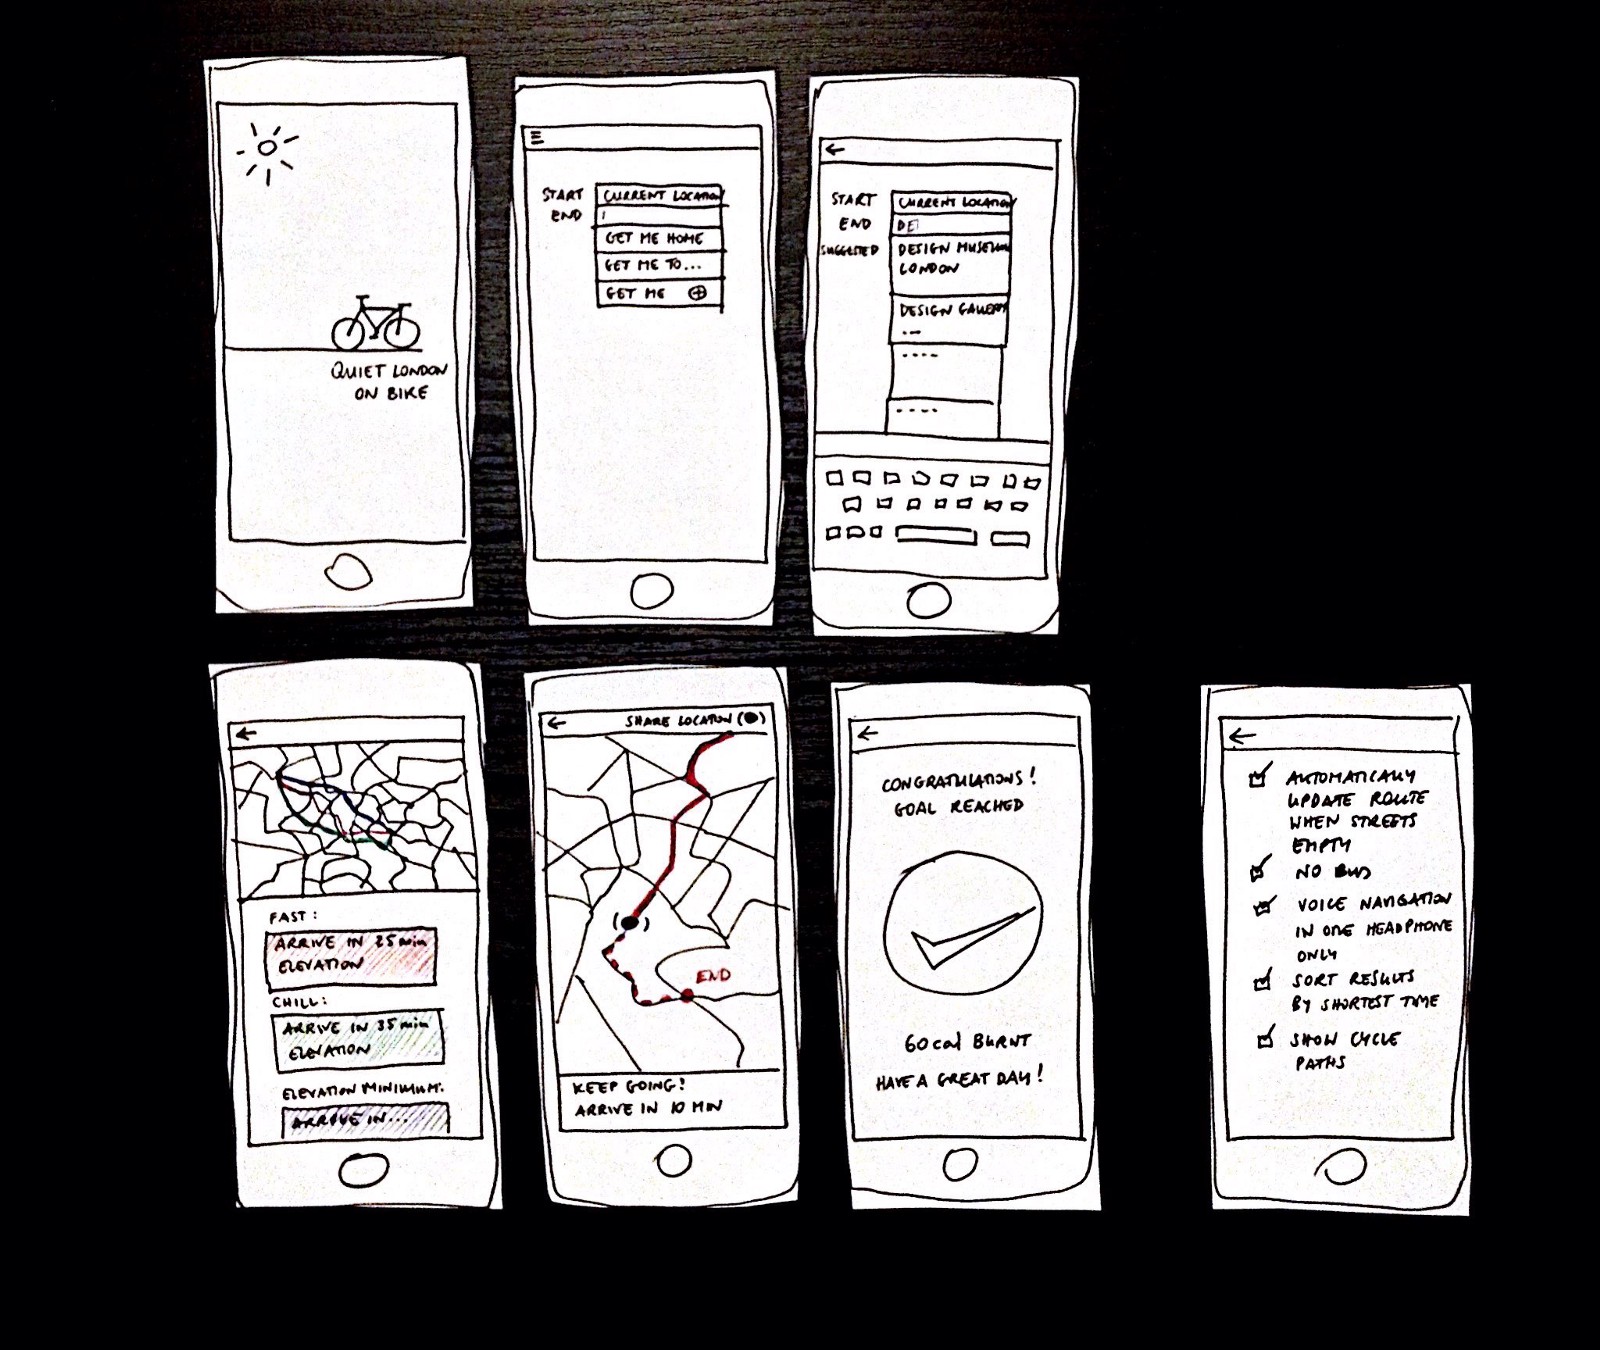 QUIET LONDON
ON BIKE
START CURRENT LOCATION
END
GET ME HOME
GET ME TO...
GET ME
START CURRENT LOCATION
END DE
SUGGESTED DESIGN MUSEUM
LONDON
DESIGN GALLERY
...
....
....
FAST:
ARRIVE IN 25 min
ELEVATION
CHILL:
ARRIVE IN 35 min
ELEVATION
ELEVATION MINIMUM:
ARRIVE IN...
SHARE LOCATION
END
KEEP GOING!
ARRIVE IN 10 MIN
CONGRATULATIONS!
GOAL REACHED
60 cal BURNT
HAVE A GREAT DAY!
AUTOMATICALLY
UPDATE ROUTE
WHEN STREETS
EMPTY
NO
VOICE NAVIGATION
IN ONE HEADPHONE
ONLY
SORT RESULTS
BY SHORTEST TIME
SHOW CYCLE
PATHS